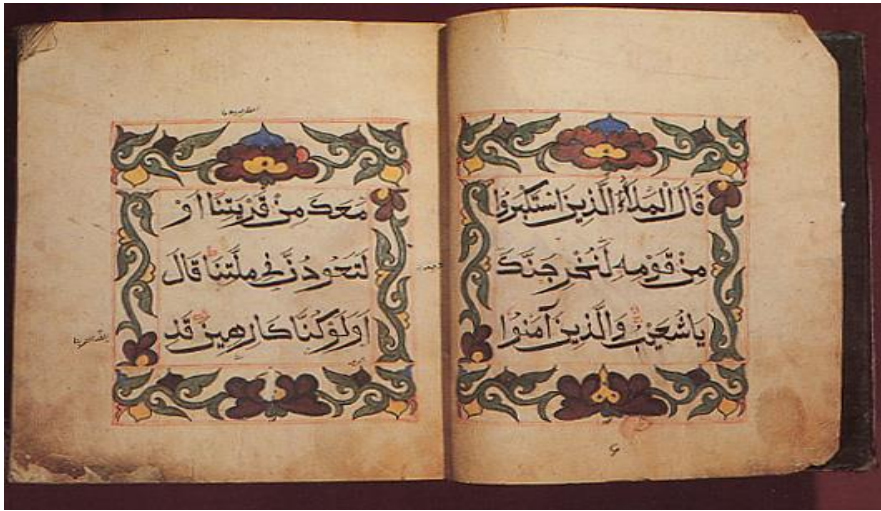 قَالَ الْمَلَأُ الَّذِينَ اسْتَكْبَرُوا
مِنْ قَوْمِهِ لَنُخْرِجَنَّكَ
يَاشُعَيْبُ وَالَّذِينَ آمَنُوا
مَعَكَ مِنْ قَرْيَتِنَا اَوْ
لَتَعُودُنَّ فِي مِلَّتِنَا قَالَ
اَوَلَوْ كُنَّا كَارِهِينَ قَدِ